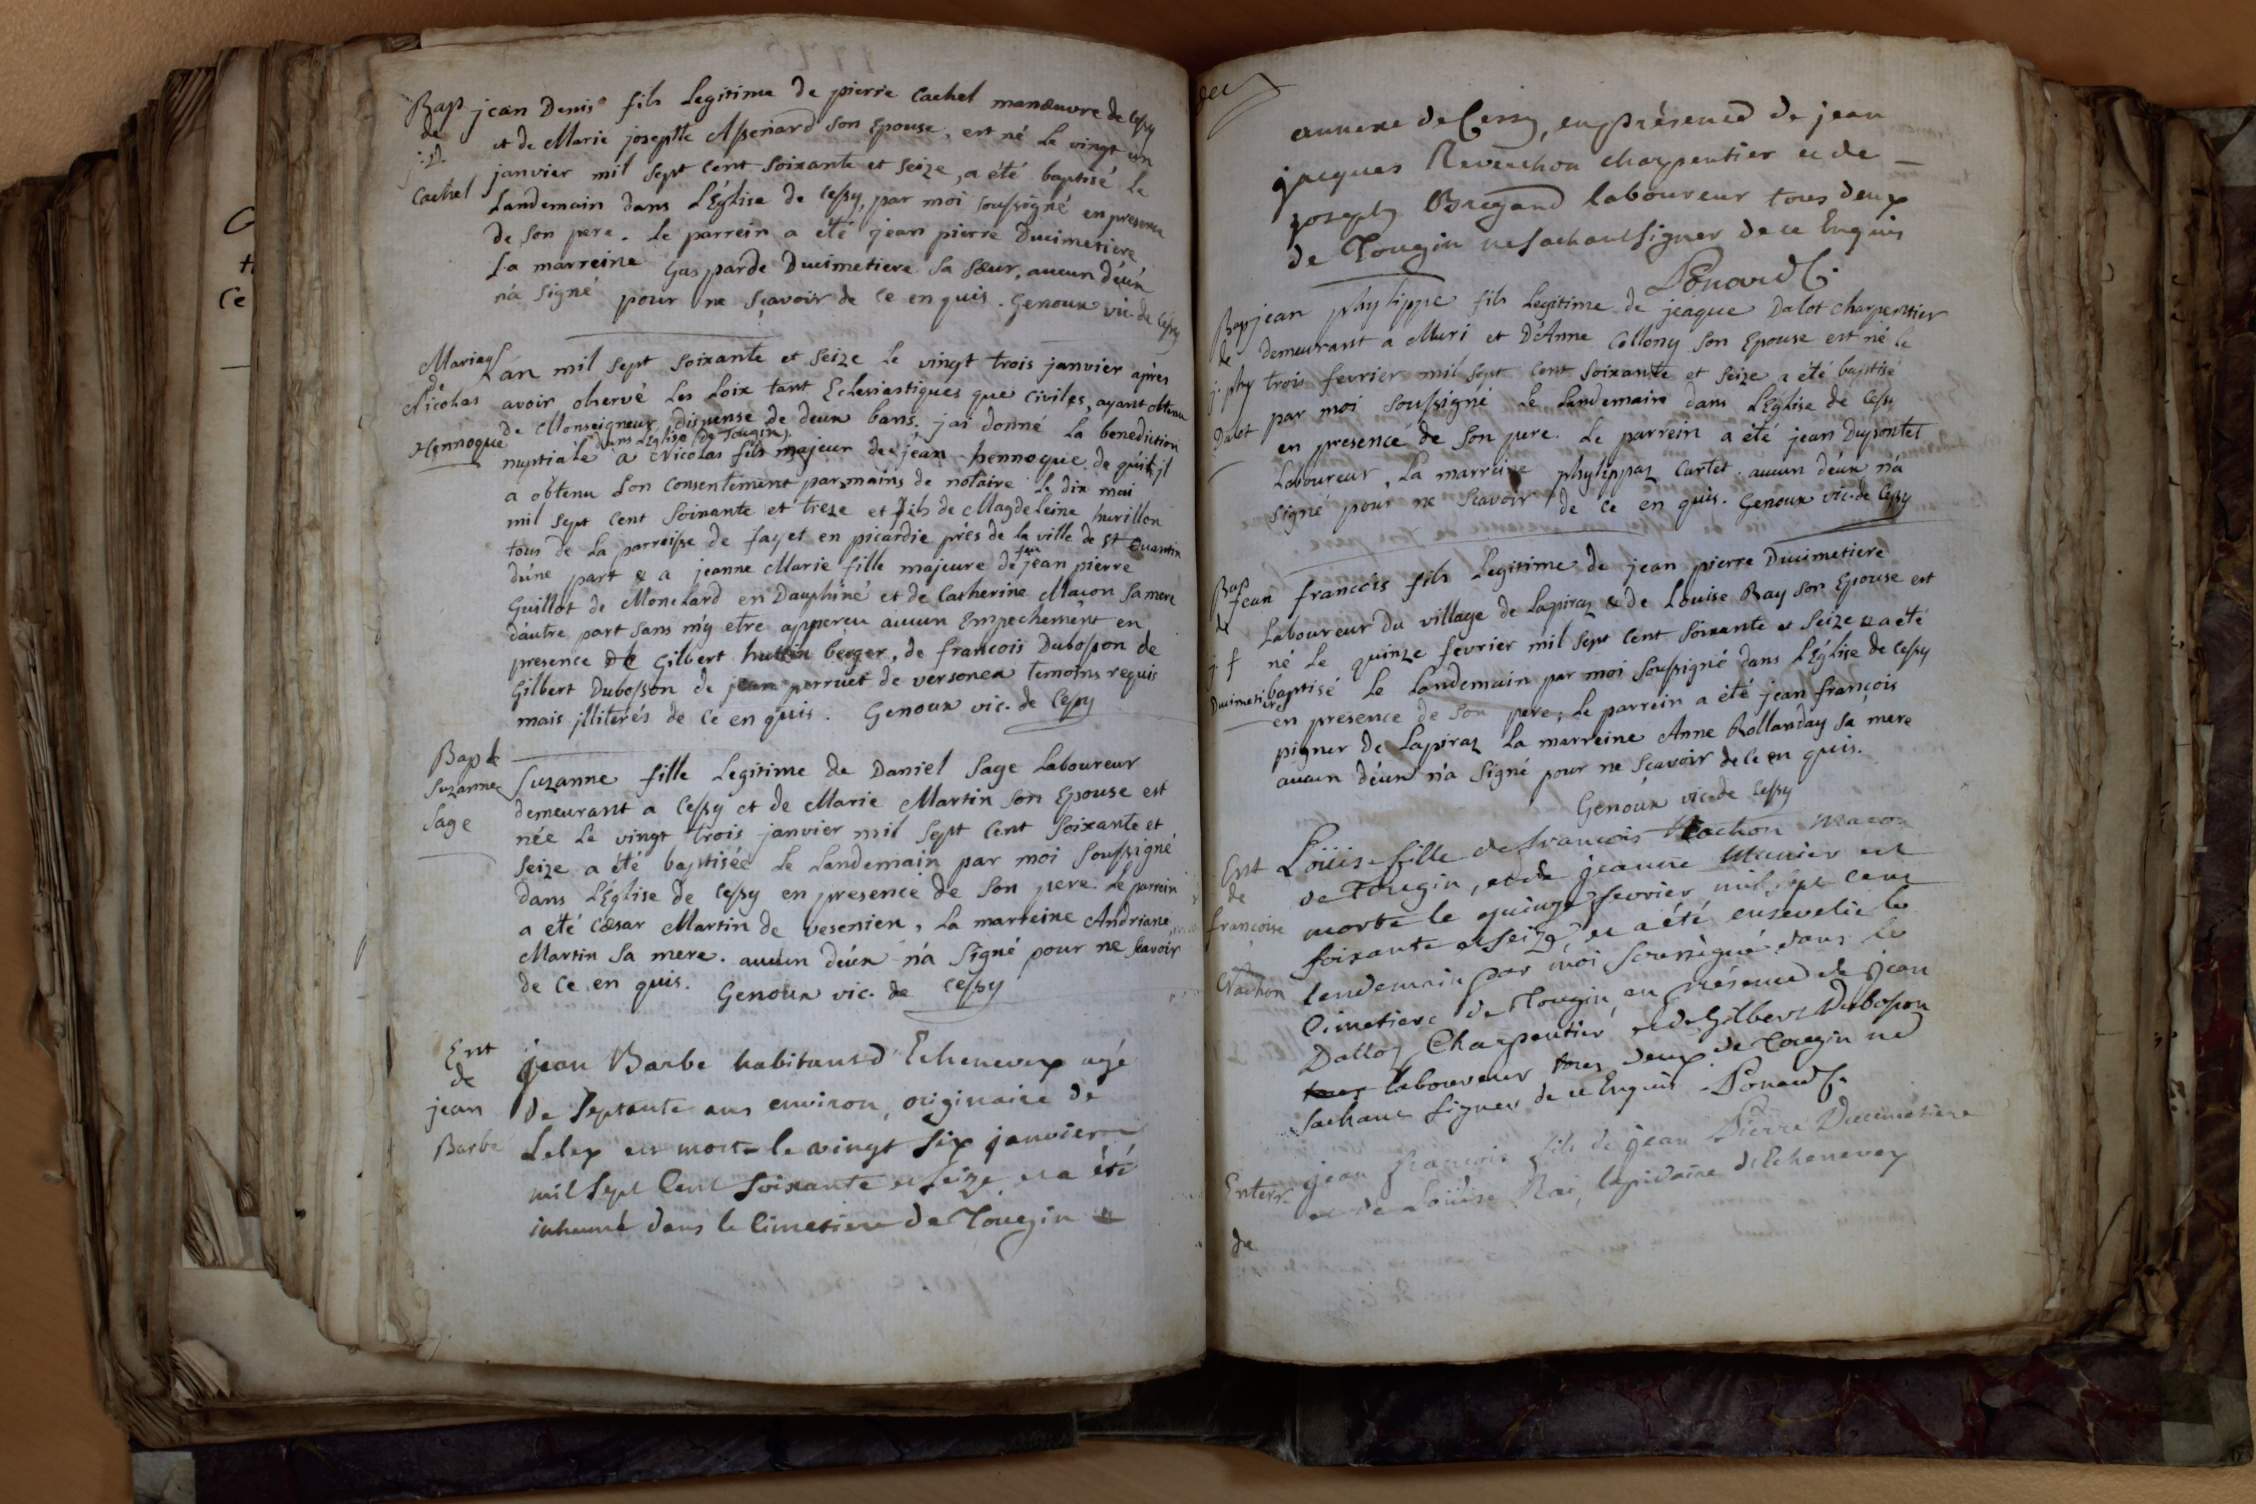 Bap
de
j. d.
Cachel
jean Denis fils Legitime de pierre Cachel manœuvre de Cessy
et de Marie josephte Assenard son Epouse, est né Le vingt un
janvier mil sept cent soixante et seize, a été baptisé Le
Landemain dans L'Église de Cessy, par moi soussigné en presence
de son pere. Le parrein a été jean pierre Ducimetiere
La marreine Gasparde Ducimetiere sa sœur, aucun d'éux
n'a signé pour ne sçavoir de ce en quis. Genoux vic. de Cessy
Mariag
de
Nicolas
Hennoque
L'an mil sept soixante et seize Le vingt trois janvier après
avoir observé Les Loix tant Eclesiastiques que civiles, ayant obtenu
de Monseigneur dispense de deux bans. j'ai donné La benediction
dans L'Eglise de Tougin
nuptiale a Nicolas fils majeur de jean hennoque de qui il
a obtenu son consentement par mains de notaire Le dix mai
mil sept cent soixante et treze et fils de Magdeleine hurillon
tous de La parroisse de fayet en picardie prés de la ville de St Quantin
d'une part & a jeanne Marie fille majeure de feu jean pierre
Guillot de Monelard en Dauphiné et de Catherine Macon sa mere
d'autre part sans m'y etre apperçu aucun Empechement en
presence de Gilbert huttin berger, de francois Dubosson de
Gilbert Dubosson de jean perruet de versonex temoins requis
mais jlliterés de ce en quis. Genoux vic. de Cessy
Bap de
Suzanne
Sage
Suzanne fille Legitime de Daniel Sage Laboureur
demeurant a Cessy et de Marie Martin son Epouse est
née Le vingt trois janvier mil sept cent soixante et
seize a été baptisée Le Landemain par moi soussigné
dans L'Église de Cessy en presence de son pere Le parrein
a été Cæsar Martin de vesenien, La marreine Andriane
Martin sa mere. aucun d'éux n'a signé pour ne scavoir
de ce en quis. Genoux vic. de Cessy
Ent
de
jean
Barbe
jean Barbe habitant d'Echenevex agé
de septante ans environ, originaire de
Lelex est mort le vingt six janvier
mil sept cent soixante et seize et a été
inhumé dans le Cimetiere de Tougin
annexe de Cessy, en présence de jean
jacques Reverchon charpentier et de
joseph Bregand laboureur tous deux
de Tougin ne sachant signer de ce Enquis
Ponard C.
Bap
de
j. phy
Dalot
jean phylippe fils Legitime de jcaque Dalot charpentier
demeurant a Muri et D'Anne Collony son Epouse est né le
trois fevrier mil sept cent soixante et seize a été baptisé
par moi soussigné Le Landemain dans L'Église de Cessy
en presence de son pere. Le parrein a été jean Dupontet
Laboureur, La marreine phylippaz Cartet. aucun d'éux n'a
signé pour ne scavoir de ce en quis. Genoux vic. de Cessy
Bap
de
j f
Ducimetiere
jean francois fils Legitime de jean pierre Ducimetiere
Laboureur du village de Lapiraz & de Louise Ray son Epouse est
né Le quinze fevrier mil sept cent soixante et seize & a été
baptisé Le Landemain par moi soussigné dans L'Église de Cessy
en presence de son pere; Le parrein a été jean françois
pigner de Lapiraz La marreine Anne Rollanday sa mere
aucun d'éux n'a signé pour ne sçavoir de ce en quis.
Genoux vic. de Cessy
Ent
de
françoise
Vachon
Loüise fille de francois Vachon Macon
de Tougin, et de jeanne Meunier est
morte le quinze fevrier mil sept cent
soixante et seize, et a été ensevelie le
lendemain par moi soussigné dans le
Cimetiere de Tougin, en présence de jean
Dalloz Charpentier et de Gilbert Dubosson
laboureur tous deux de Tougin ne
sachant signer de ce Enquis Ponard C.
Enterr.
de
jean françois fils de jean Pierre Ducimetiere
et de Loüise Rai, lapidaire d'Echenevex